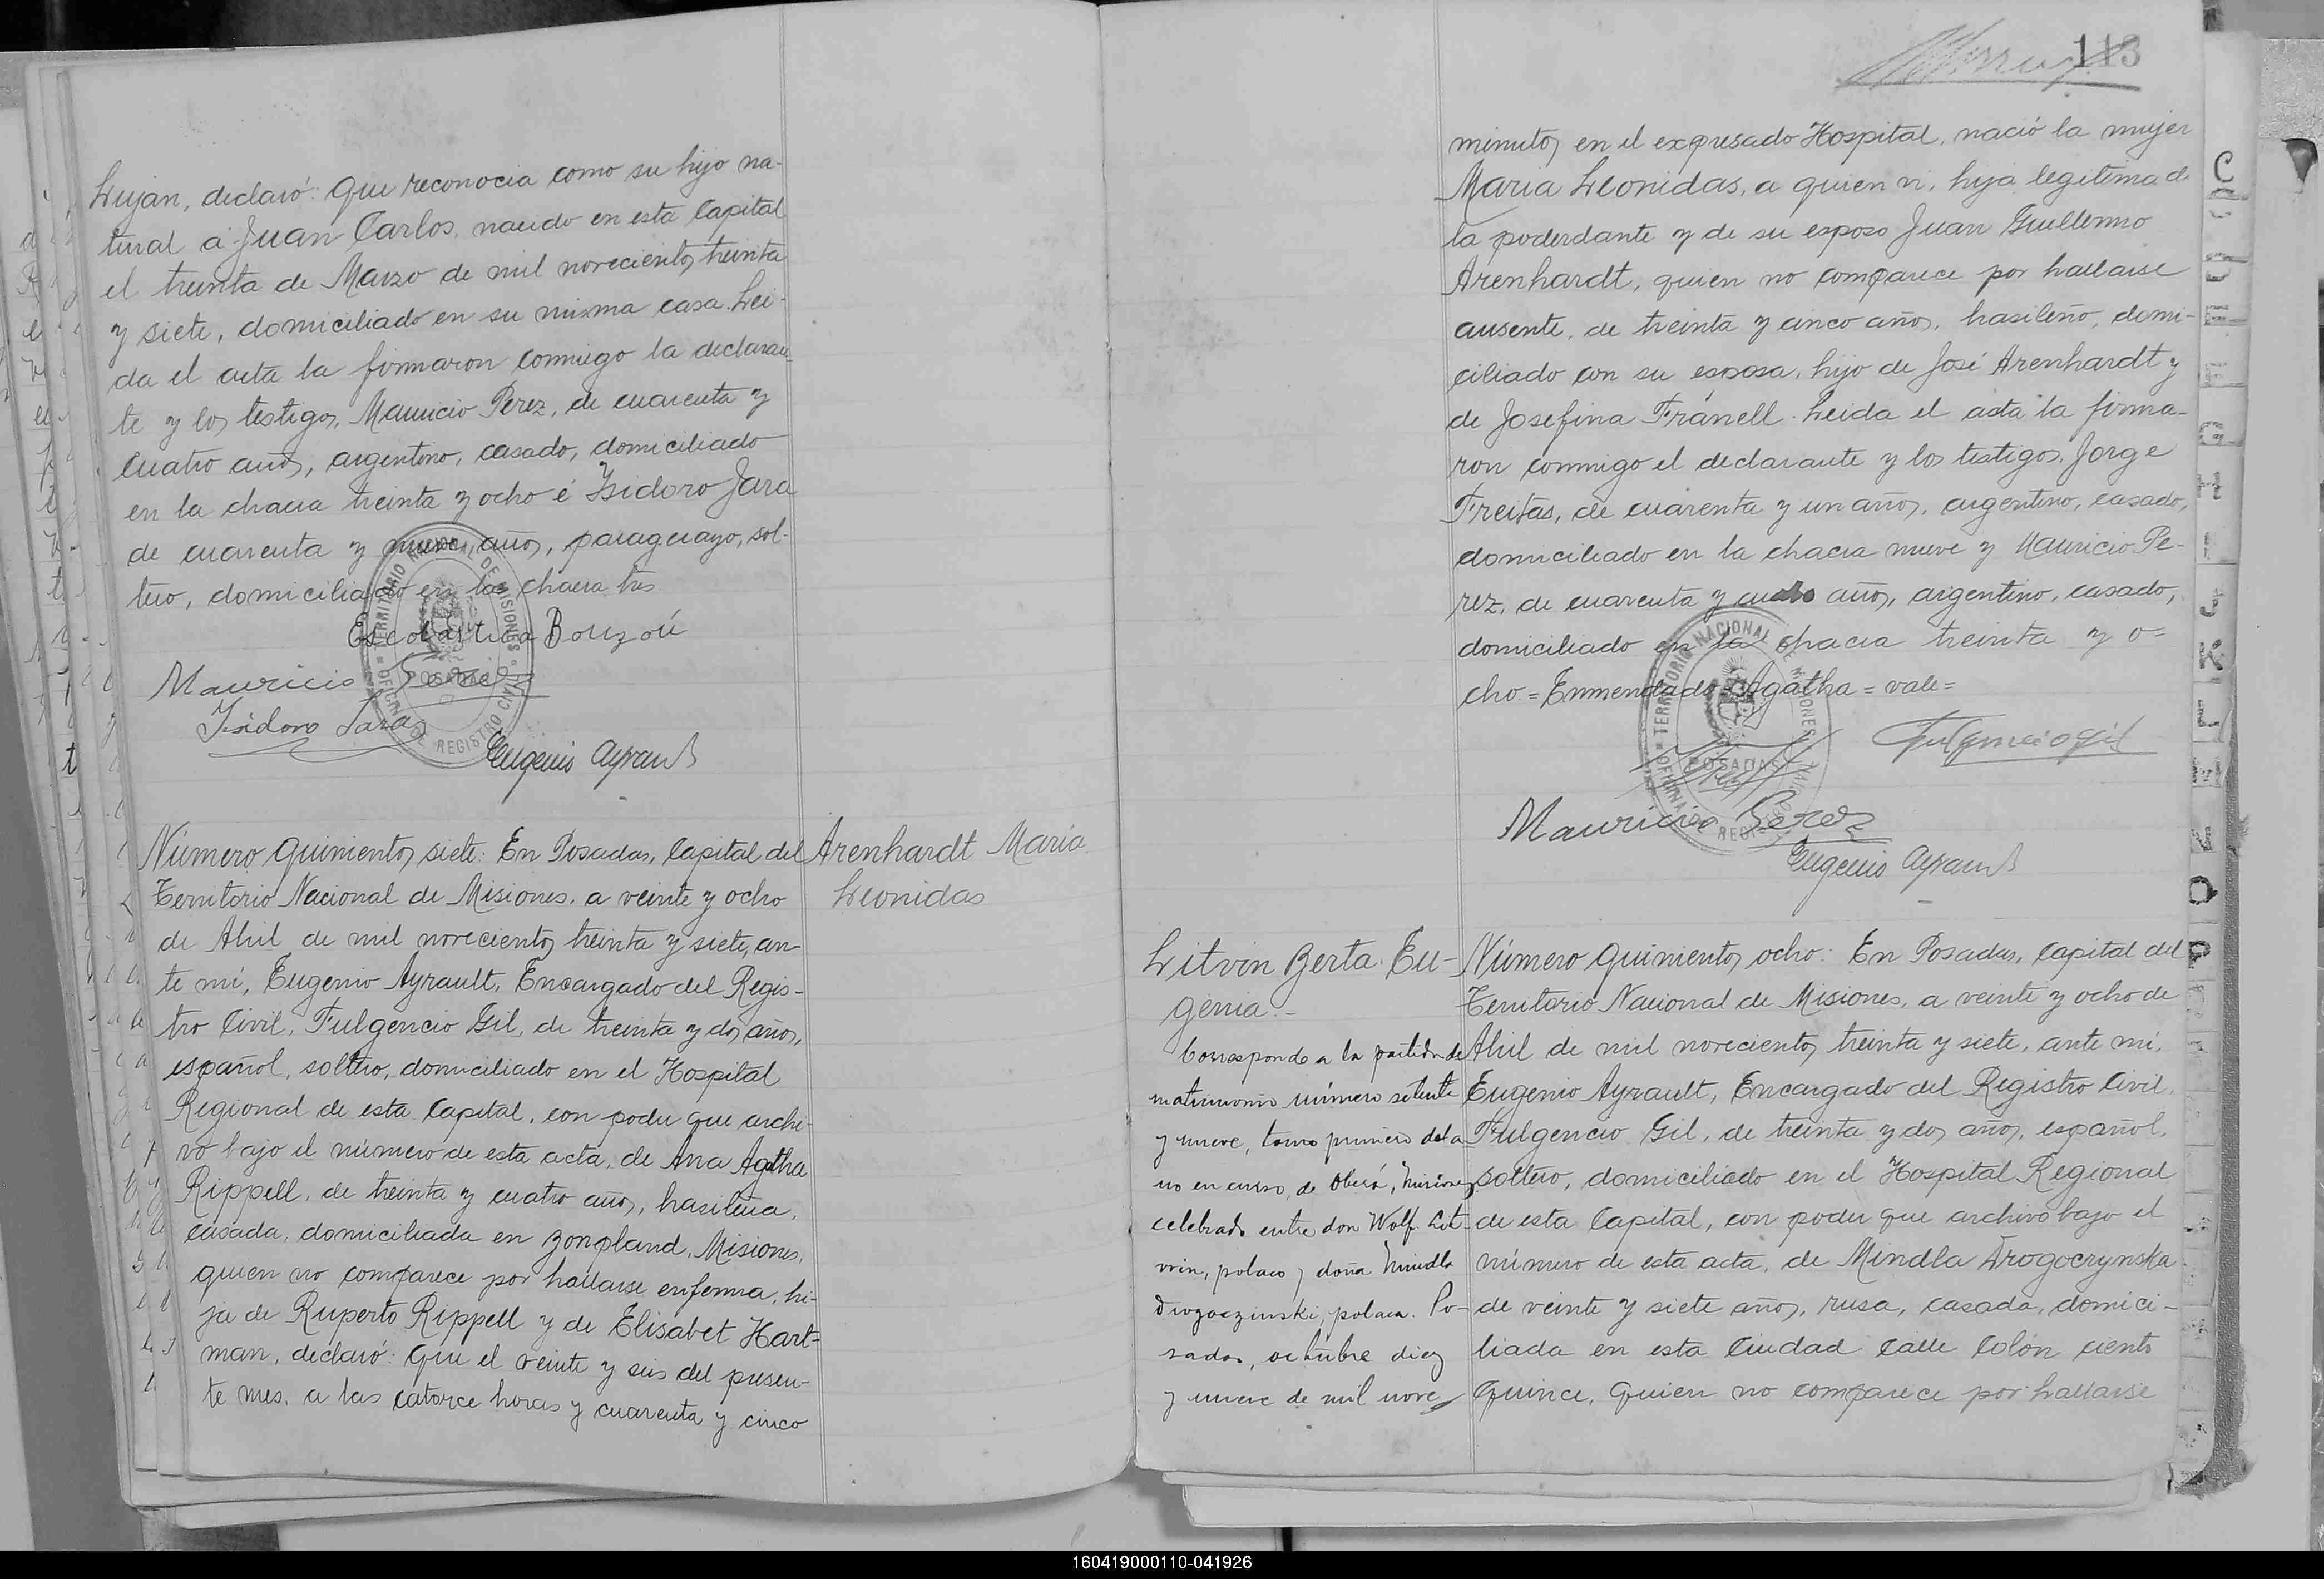 Lujan, declaró: Que reconocia como su hijo na-
tural a Juan Carlos, nacido en esta Capital
el treinta de Marzo de mil novecientos treinta
y siete, domiciliado en su misma casa. Lei-
da el acta la firmaron conmigo la declaran-
te y los testigos, Mauricio Perez, de cuarenta y
cuatro años, argentino, casado, domiciliado
en la chacra treinta y ocho é Isidoro Jara
de cuarenta y nueve años, paraguayo, sol-
tero, domiciliado en la chacra tres
Escolastica Bouzoú
Mauricio Perez
Isidoro Jara
Eugenio Ayrault
TERRITORIO NACIONAL DE MISIONES
OFICINA DE REGISTRO CIVIL
POSADAS
Número quinientos siete: En Posadas, Capital del
Territorio Nacional de Misiones, a veinte y ocho
de Abril de mil novecientos treinta y siete, an-
te mí, Eugenio Ayrault, Encargado del Regis-
tro Civil, Fulgencio Gil, de treinta y dos años,
español, soltero, domiciliado en el Hospital
Regional de esta Capital, con poder que archi-
vo bajo el número de esta acta, de Ana Agatha
Rippell, de treinta y cuatro años, brasileña,
casada, domiciliada en Bonpland, Misiones,
quien no comparece por hallarse enferma, hi-
ja de Ruperto Rippell y de Elisabet Hart-
man, declaró: Que el veinte y seis del presen-
te mes, a las catorce horas y cuarenta y cinco
Arenhardt Maria
Leonidas
113
minutos en el expresado Hospital, nació la mujer
Maria Leonidas, a quien vi, hija legitima de
la poderdante y de su esposo Juan Guillermo
Arenhardt, quien no comparece por hallarse
ausente, de treinta y cinco años, brasileño, domi-
ciliado con su esposa, hijo de José Arenhardt y
de Josefina Fránell. Leida el acta la firma-
ron conmigo el declarante y los testigos, Jorge
Freitas, de cuarenta y un años, argentino, casado,
domiciliado en la chacra nueve y Mauricio Pe-
rez, de cuarenta y cuatro años, argentino, casado,
domiciliado en la chacra treinta y o=
cho.=Enmendado=Agatha=vale=
Fulgencio Gil
Mauricio Perez
Eugenio Ayrault
TERRITORIO NACIONAL DE MISIONES
OFICINA DE REGISTRO CIVIL
POSADAS
Litvin Berta Eu-
genia.-
Corresponde a la partida de
matrimonio número setenta
y nueve, tomo primero del a
no en curso, de Oberá, Misiones,
celebrado entre don Wolf Lit-
vin, polaco y doña Mindla
Drogoczinski, polaca. Po-
sadas, octubre diez
y nueve de mil nove
Número quinientos ocho: En Posadas, Capital del
Territorio Nacional de Misiones, a veinte y ocho de
Abril de mil novecientos treinta y siete, ante mí,
Eugenio Ayrault, Encargado del Registro Civil,
Fulgencio Gil, de treinta y dos años, español,
soltero, domiciliado en el Hospital Regional
de esta Capital, con poder que archivo bajo el
número de esta acta, de Mindla Drogocrynska
de veinte y siete años, rusa, casada, domici-
liada en esta Ciudad calle Colón ciento
quince, quien no comparece por hallarse
C
G
H
J
K
L
O
P
160419000110-041926